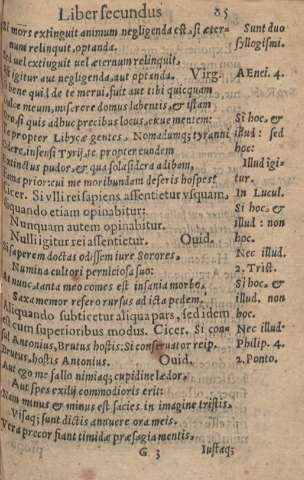 Liber secundus 85
Si mors extinguit animum negligenda est, si æter-
num relinquit, optanda.
Sed uel extiuguit uel æternum relinquit,
igitur aut negligenda, aut optanda. Virg.
bene quid de te merui, fuit aut tibi quicquam
Dulce meum, miserere domus labentis, & istam
Oro, si quis adhuc precibus locus, exue mentem:
Te propter Libycæ gentes, Nomadumq; tyranni
Odere, infensi Tyrij, te propter eundem
Extinctus pudor, & qua sola sidera adibam,
Fama prior: cui me moribundam deseris hospes?
Cicer. Si vlli rei sapiens assentietur vsquam,
Aliquando etiam opinabitur:
Nunquam autem opinabitur.
Nulli igitur rei assentietur. Ouid.
Si saperem doctas odissem iure Sorores,
Numina cultori perniciosa suo:
At nunc, tanta meo comes est insania morbo,
Saxa memor refero rursus ad icta pedem.
Aliquando subticetur aliqua pars, sed idem
est cum superioribus modus. Cicer. Si con-
sul Antonius, Brutus hostis: Si conseruator reip.
Brutus, hostis Antonius. Ouid.
Aut ego me fallo nimiaq; cupidine lædor,
Aut spes exilij commodioris erit:
Nam minus & minus est facies in imagine tristis,
Visaq; sunt dictis annuere ora meis.
Vera precor fiant timidæ præsagia mentis,
G 3 Iustaq;
Sunt duo
syllogismi.
AEnei. 4.
Si hoc, &
illud: sed
hoc:
Illud igi-
tur.
In Lucul.
Si hoc, &
illud: non
hoc.
Nec illud.
2. Trist.
Si hoc, &
illud. non
hoc.
Nec illud.
Philip. 4.
2. Ponto.